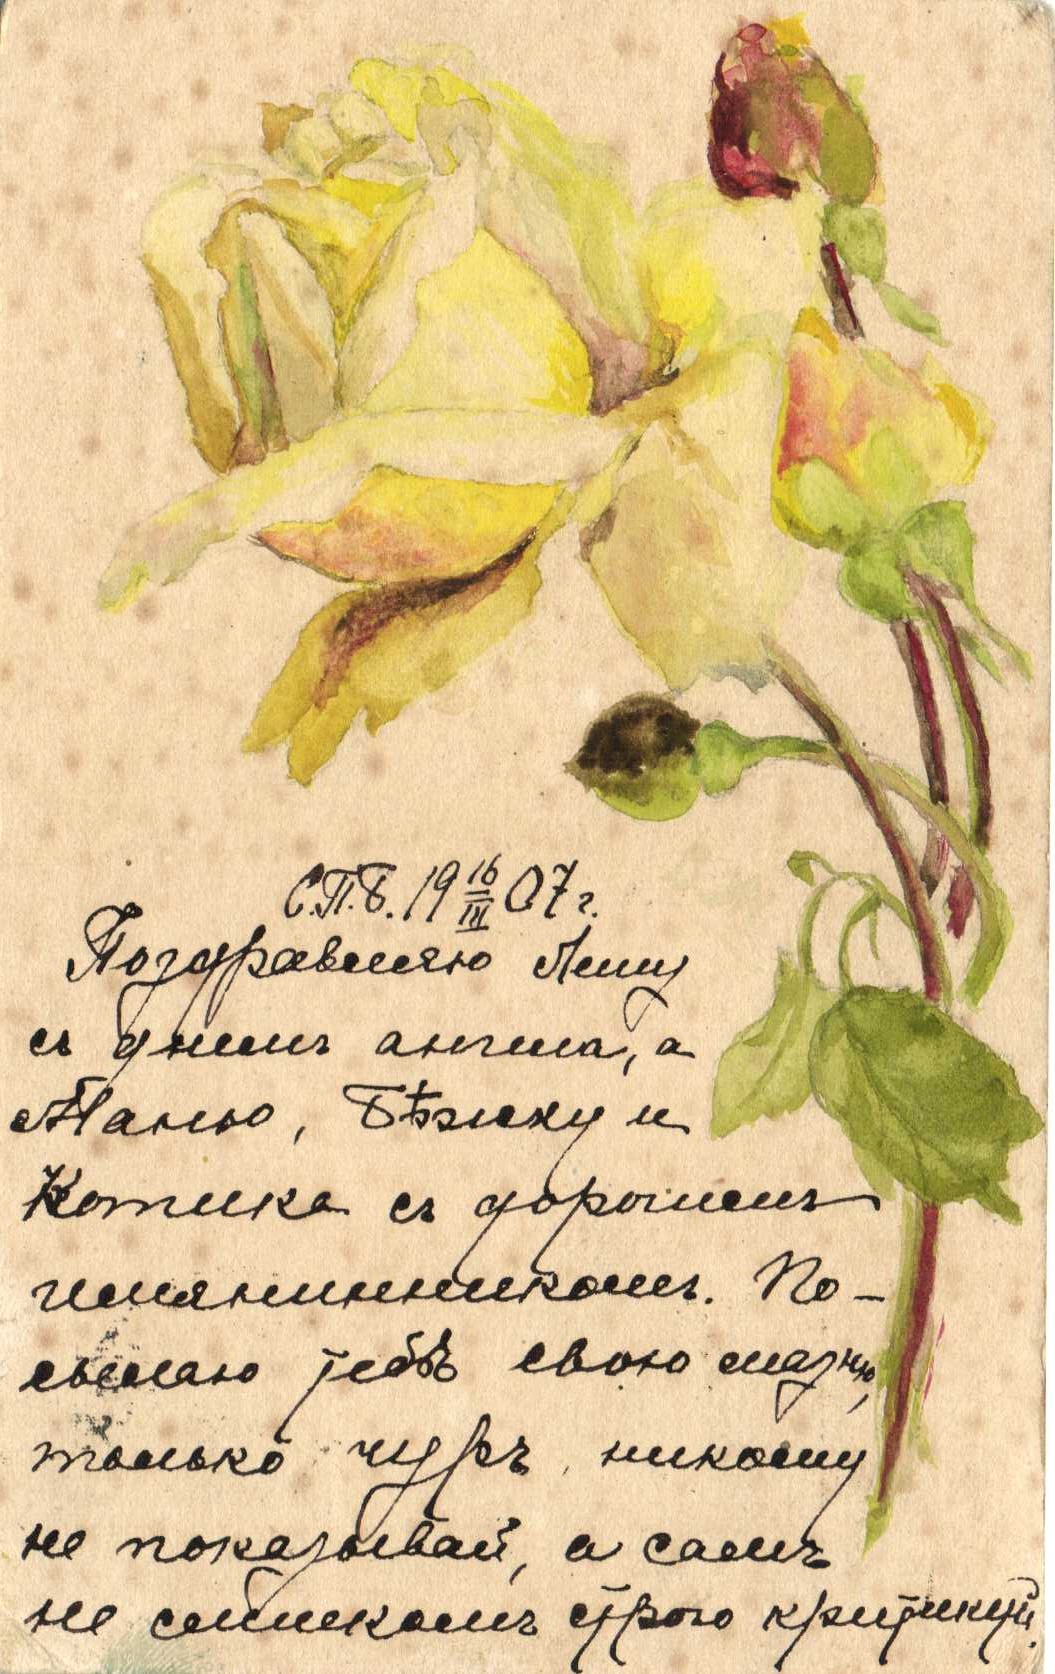 С.П.Б. 19 16/III 07 г.
Поздравляю Лешу
съ днемъ ангела, а
Маню, Бѣжку и
Котика съ дорогимъ
имянинникомъ. По-
сылаю тебѣ свою мазню,
только чуръ никому
не показывай, а самъ
не слишкомъ строго критикуй.